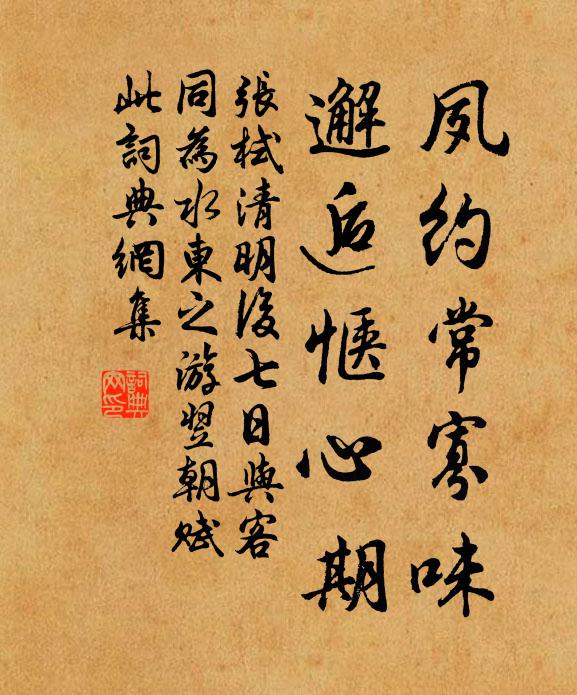 夙約常寡味
邂逅愜心期
張栻清明後七日與客
同為水東之游翌朝賦
此詞典網集
詞典
网印